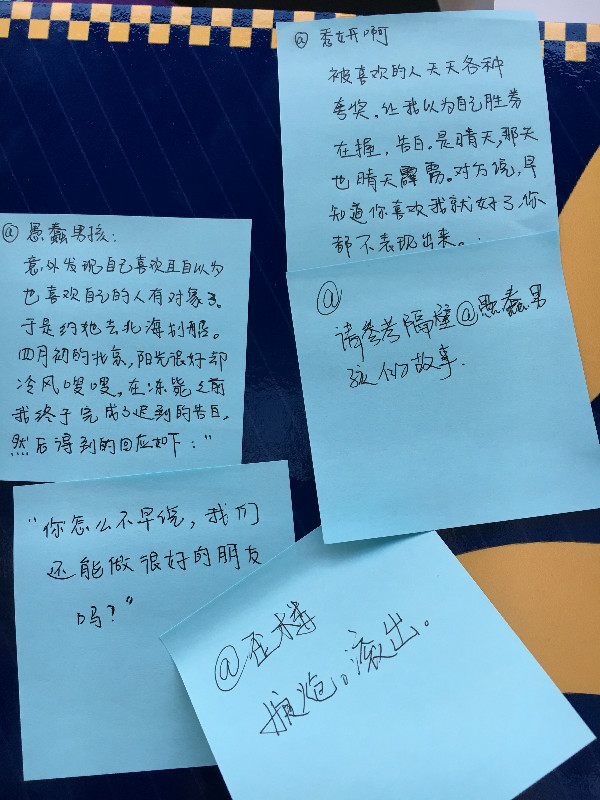 @愚蠢男孩:
意外发现自己喜欢且自以为
也喜欢自己的人有对象了。
于是约他去北海划船。
四月初的北京,阳光很好却
冷风嗖嗖,在冻毙之前
我终于完成了迟到的告白,
然后得到的回应如下:"
"你怎么不早说,我们
还能做很好的朋友
吗?"
@秀妍啊
被喜欢的人天天各种
夸奖。让我以为自己胜券
在握,告白。是晴天,那天
也晴天霹雳。对方说,早
知道你喜欢我就好了,你
都不表现出来。
@
请参考隔壁@愚蠢男
孩的故事.
@歪楼
。滚出。